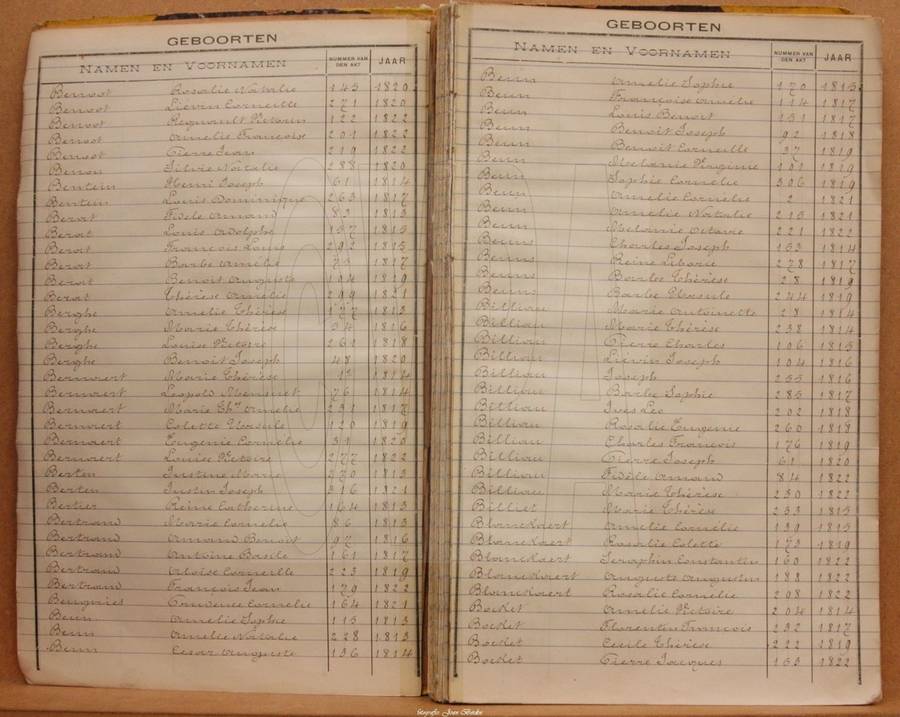 GEBOORTEN
NAMEN EN VOORNAMEN NUMMER VAN DEN AKT JAAR
Benoot Rosalie Natalie 145 1820
Benoot Liévin Corneille 271 1820
Benoot Regnault Victorin 122 1822
Benoot Amelie Françoise 201 1822
Benoot Pierre Jean 219 1822
Benou Silvie Natalie 288 1820
Bentein Henri Joseph 61 1814
Bentein Louis Dominique 263 1817
Berat Fidèle Amand 83 1813
Berat Louis Adolphe 157 1815
Berat François Louis 292 1815
Berat Barbe Amélie 75 1817
Berat Benoit Auguste 104 1819
Berat Thérèse Amelie 299 1821
Berghe Amelie Thérèse 177 1813
Berghe Marie Thérèse 34 1816
Berghe Louise Victoire 261 1818
Berghe Benoit Joseph 48 1820
Bernaert Marie Thérèse 12 1814
Bernaert Leopold 76 1814
Bernaert Marie Thse Amelie 231 1817
Bernaert Colette Ursule 120 1819
Bernaert Eugénie Cornélie 31 1820
Bernaert Louise Victoire 277 1822
Berten Justine Marie 270 1813
Berten Justin Joseph 316 1821
Bertier Reine Catherine 164 1813
Bertrand Marie Cornelie 86 1813
Bertrand Amand Benoit 97 1816
Bertrand Antoine Basile 161 1817
Bertrand Aloise Corneille 223 1819
Bertrand François Jean 179 1822
Beugnies Prudence Cornelie 164 1821
Beun Amelie Sophie 115 1813
Beun Amelie Natalie 228 1813
Beun Cesar Auguste 136 1814
GEBOORTEN
NAMEN EN VOORNAMEN NUMMER VAN DEN AKT JAAR
Beun Amelie Sophie 170 1815
Beun Françoise Amelie 114 1817
Beun Louis Benoit 151 1817
Beun Benoit Joseph 92 1818
Beun Benoit Corneille 37 1819
Beun Melanie Virginie 101 1819
Beun Sophie Cornelie 306 1819
Beun Amelie Cornelie 2 1821
Beun Amelie Natalie 215 1821
Beun Melanie Octavie 221 1822
Beuns Charles Joseph 153 1814
Beuns Reine Liborie 278 1817
Beuns Barbe Thérèse 28 1819
Beuns Barbe Ursule 244 1819
Billiau Marie Antoinette 28 1814
Billiau Marie Thérèse 238 1814
Billiau Pierre Charles 106 1815
Billiau Liévin Joseph 104 1816
Billiau Joseph 255 1816
Billiau Barbe Sophie 285 1817
Billiau Ives Leo 202 1818
Billiau Rosalie Eugenie 260 1818
Billiau Charles François 176 1819
Billiau Pierre Joseph 61 1820
Billiau Fidèle Amand 84 1822
Billiau Marie Thérèse 230 1822
Billiet Marie Thérèse 233 1815
Blanckaert Amelie Cornélie 139 1815
Blanckaert Rosalie Colette 173 1819
Blanckaert Seraphin Constantin 160 1822
Blanckaert Auguste Augustin 188 1822
Blanckaert Rosalie Cornelie 208 1822
Boedet Amélie Victoire 204 1814
Boedet Florentin François 232 1817
Boedet Cecile Thérèse 222 1819
Boedet Pierre Jacques 153 1822